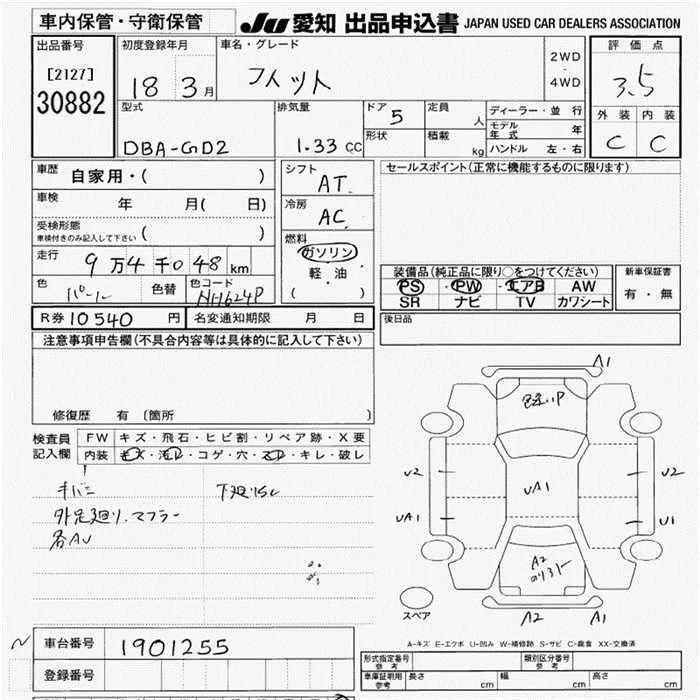 車内保管・守衛保管
JU 愛知 出品申込書 JAPAN USED CAR DEALERS ASSOCIATION
出品番号
[2127]
30882
初度登録年月
18 3月
車名・グレード
フィット
2WD
・
4WD
評価点
3.5
外装 内装
C C
型式
DBA-GD2
排気量
1.33 CC
ドア 5
形状
定員 人
積載 kg
ディーラー・並行
モデル年式 年
ハンドル 左・右
車歴
自家用・( )
車検 年 月( 日)
受検形態
車検付きのみ記入して下さい ( )
走行 9万4千048km
色 パール 色替 色コード NH624P
シフト
AT
冷房
AC
燃料
ガソリン
軽・油
( )
セールスポイント(正常に機能するものに限ります)
装備品(純正品に限り○をつけてください)
PS ・ PW ・ エアB AW
SR ナビ TV カワシート
新車保証書
有・無
R券 10540 円 名変通知期限 月 日
後日品
注意事項申告欄(不具合内容等は具体的に記入して下さい)
修復歴 有 〔箇所 〕
検査員
記入欄
FW キズ・飛石・ヒビ割・リペア跡・X要
内装 キズ・汚レ・コゲ・穴・スレ・キレ・破レ
キバミ
下廻りサビ
外足廻り、マフラー
各AU
A1
U2
U2
UA1
UA1
U1
A2
A2
A1
スペア
A-キズ E-エクボ U-凹み W-補修跡 S-サビ C-腐食 XX-交換済
車台番号 1901255
登録番号
形式指定番号
参考
類別区分番号
参考
車庫証明用
参考
長さ cm 幅 cm 高さ cm